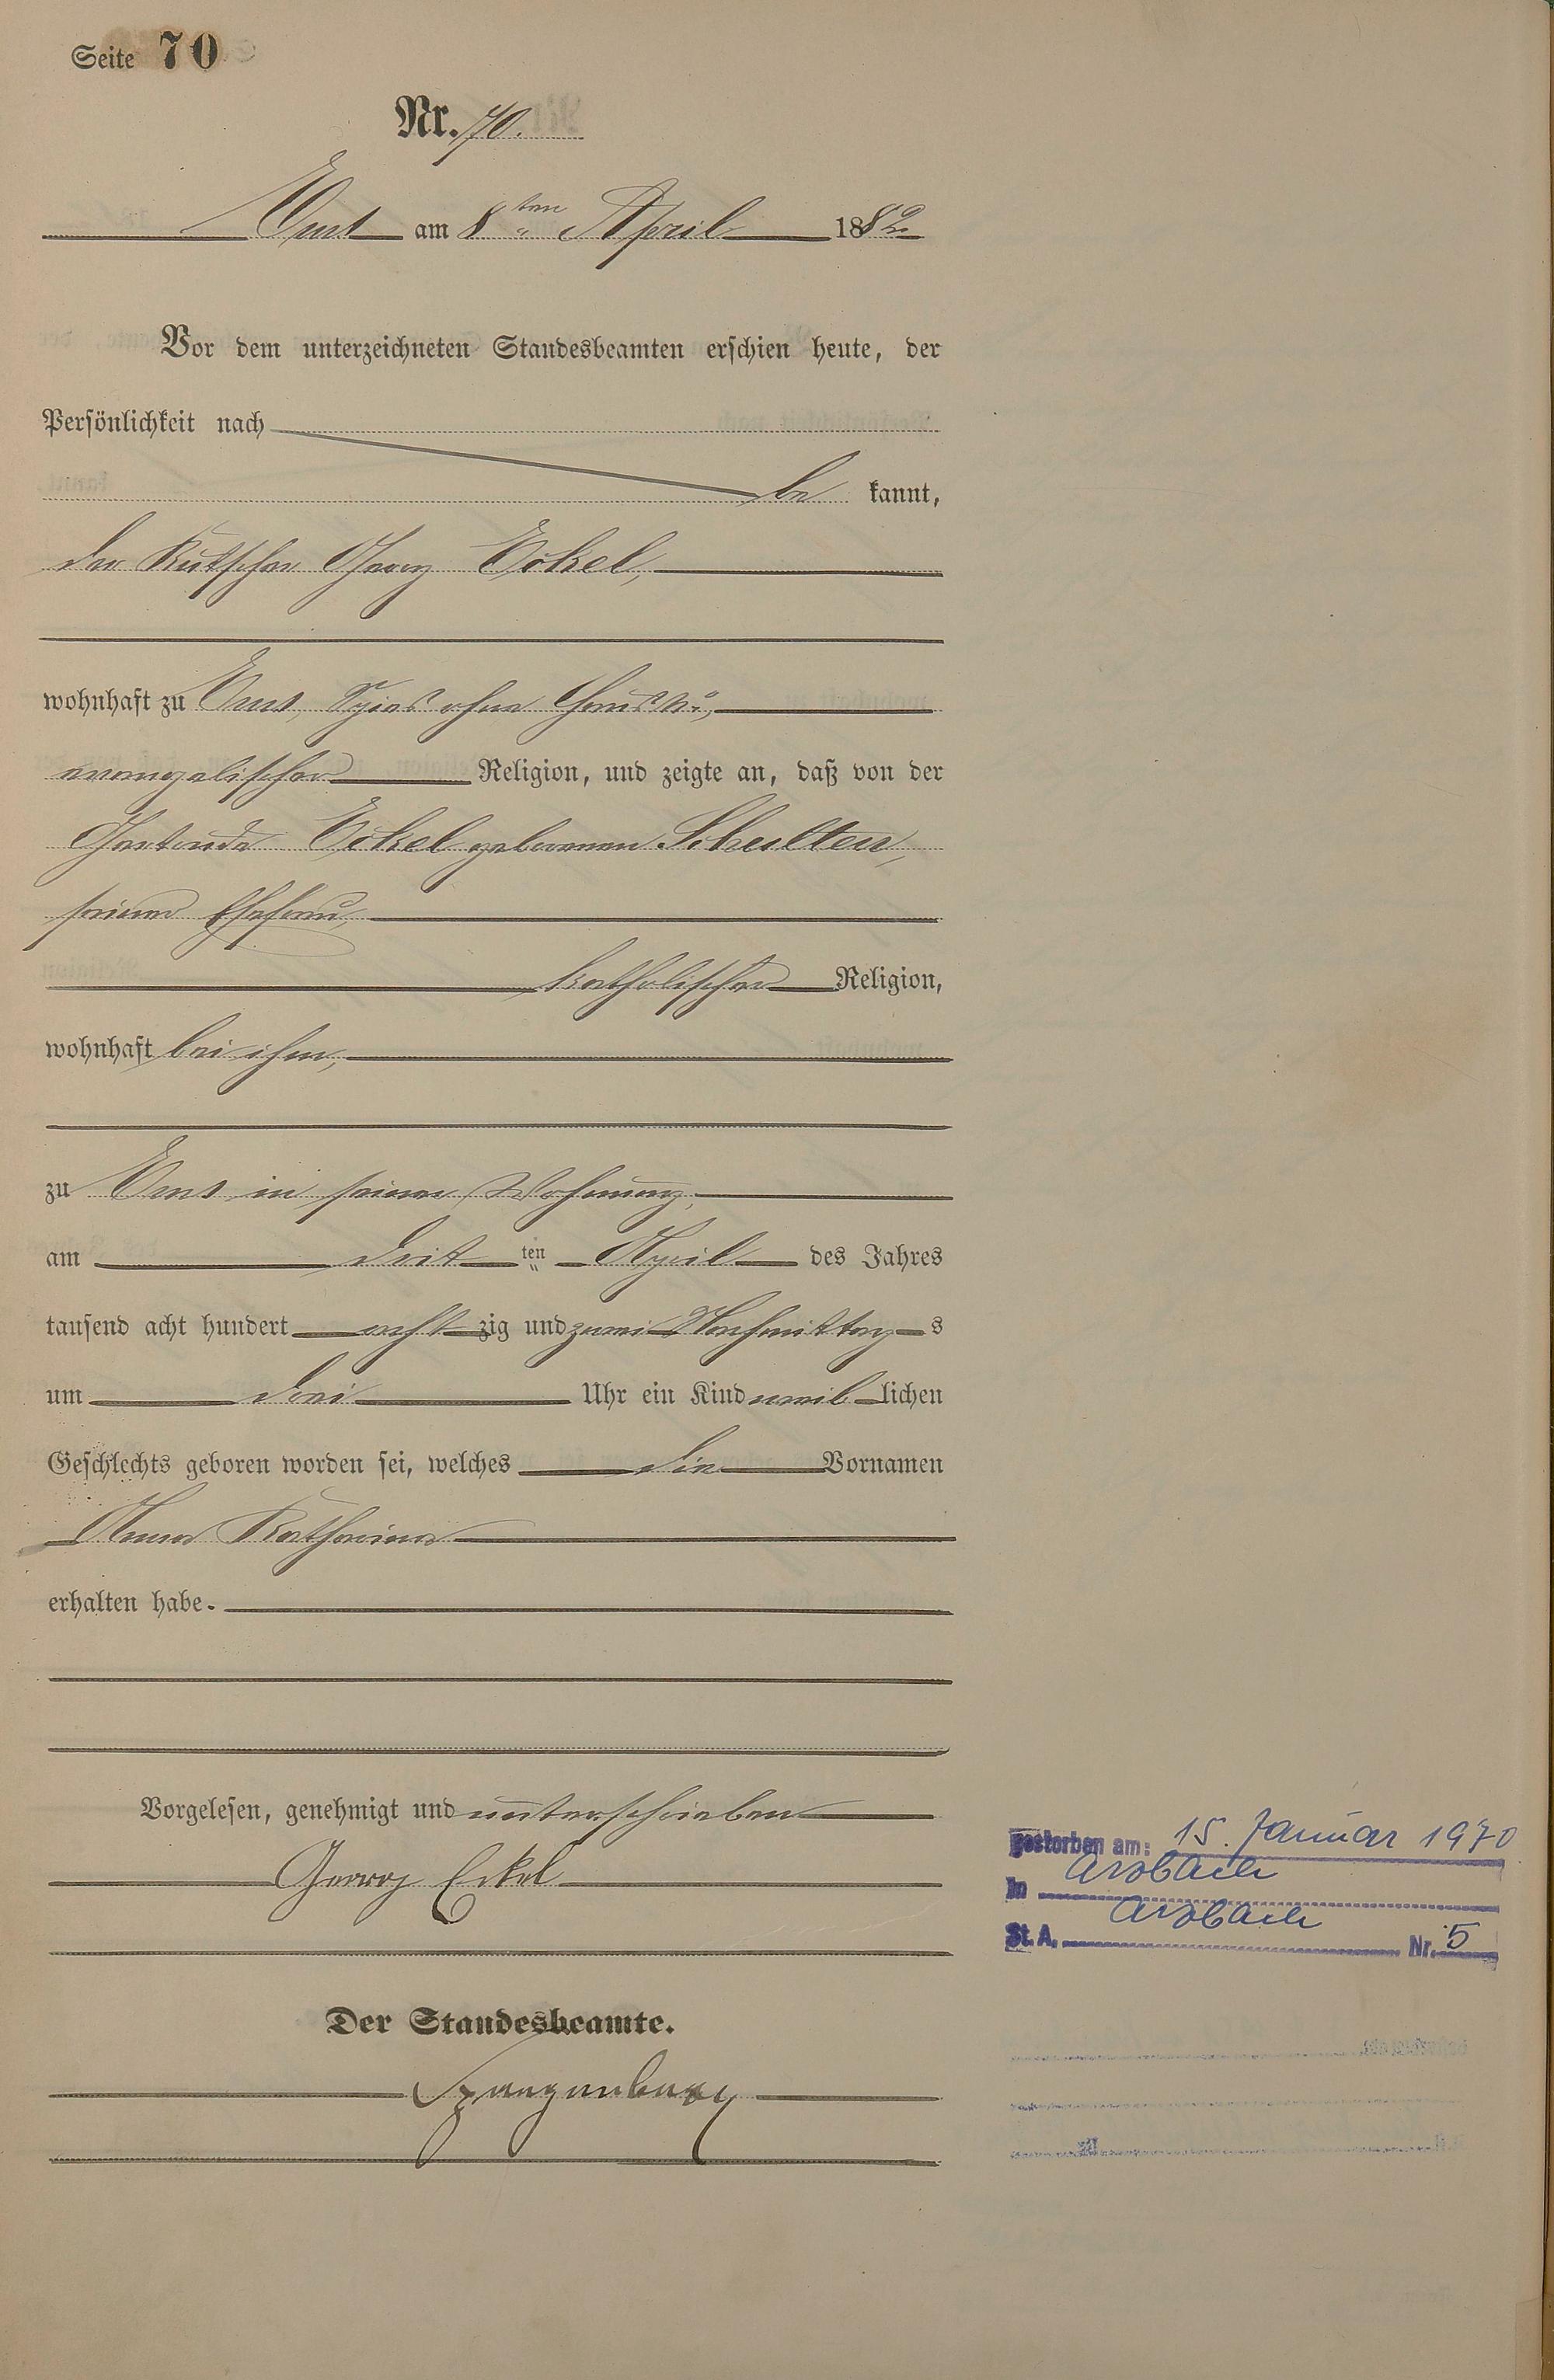 Seite 70
Nr. 70.
Ems am 8ten April 1882
Vor dem unterzeichneten Standesbeamten erschien heute, der
Persönlichkeit nach
be kannt,
der Kutscher Georg Eckel,
wohnhaft zu Ems, Spies ohne Haus No,
evangelischer Religion, und zeigte an, daß von der
Gertrude Eckel geborenen Schulten,
seiner Ehefrau,
katholischer Religion,
wohnhaft bei ihm,
zu Ems in seiner Wohnung,
am dritten April des Jahres
tausend acht hundert achtzig und zwei Nachmittags
um drei Uhr ein Kind weiblichen
Geschlechts geboren worden sei, welches die Vornamen
Anna Katharina
erhalten habe.
Vorgelesen, genehmigt und unterschrieben
Georg Eckel
Der Standesbeamte.
Spangenberg
gestorben am: 15. Januar 1970
In Arzbach
St. A. Arzbach Nr. 5